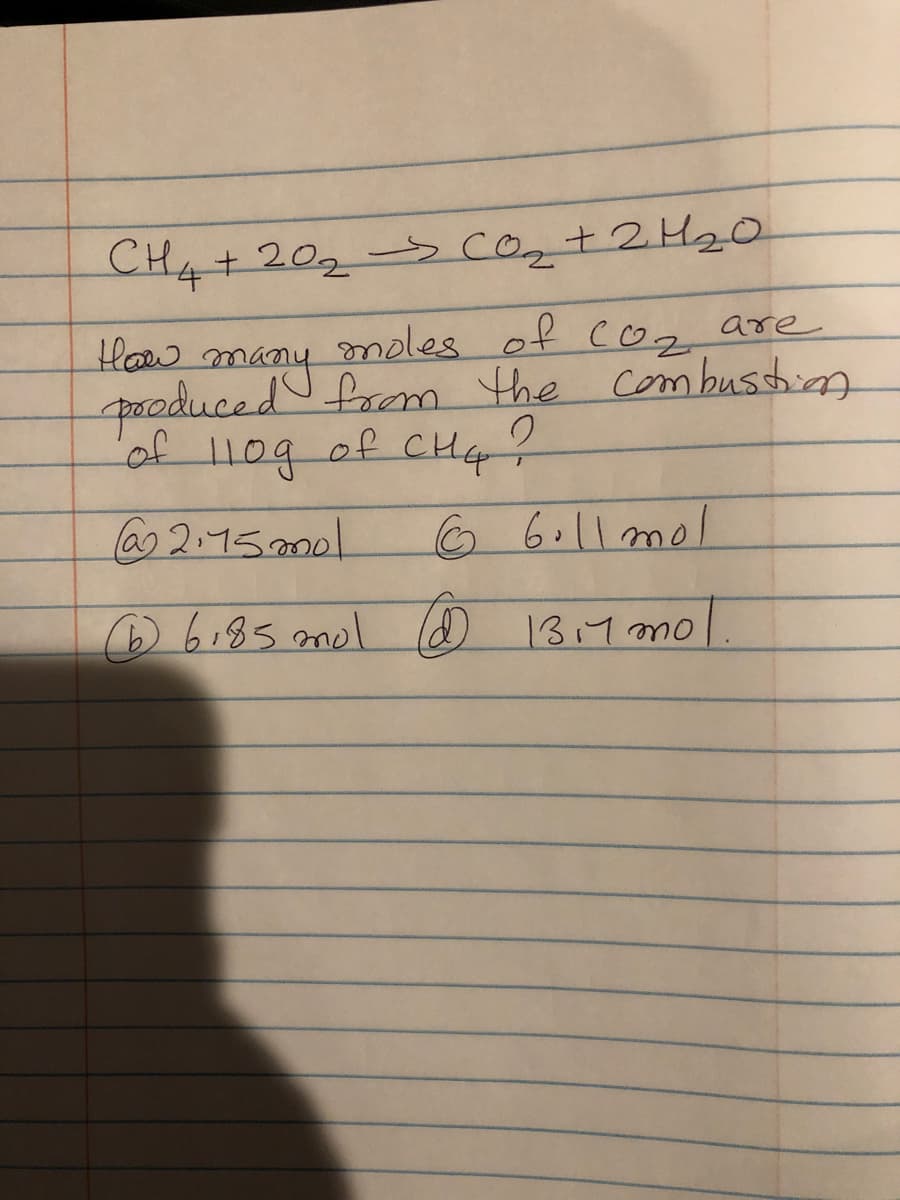 CH₄ + 2O₂ → CO₂ + 2H₂O
How many moles of CO₂ are
produced from the combustion
of 110g of CH₄?
(a) 2.75 mol (c) 6.11 mol
(b) 6.85 mol (d) 13.7 mol.